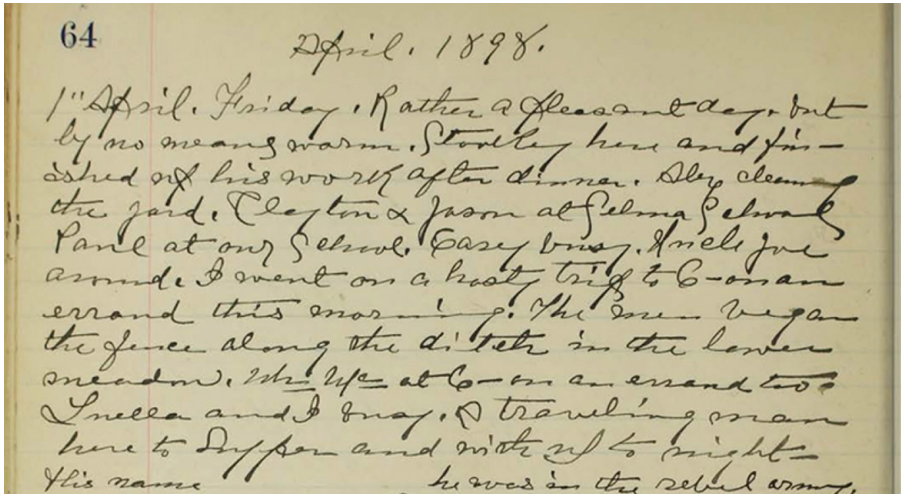 64
April. 1898.
1" April. Friday. Rather a pleasant day. but
by no means warm. Stoolley here and fin-
ished up his work after dinner. Alex cleaning
the yard. Clayton & Jason at Selma School
Paul at our School. Casey busy. Uncle Joe
around. I went on a hasty trip to C- on an
errand this morning. The men began
the fence along the ditch in the lower
meadow. Mr Mc at C- on an errand too.
Luella and I busy. A traveling man
here to Supper and with us to night-
His name he was in the rebel army.